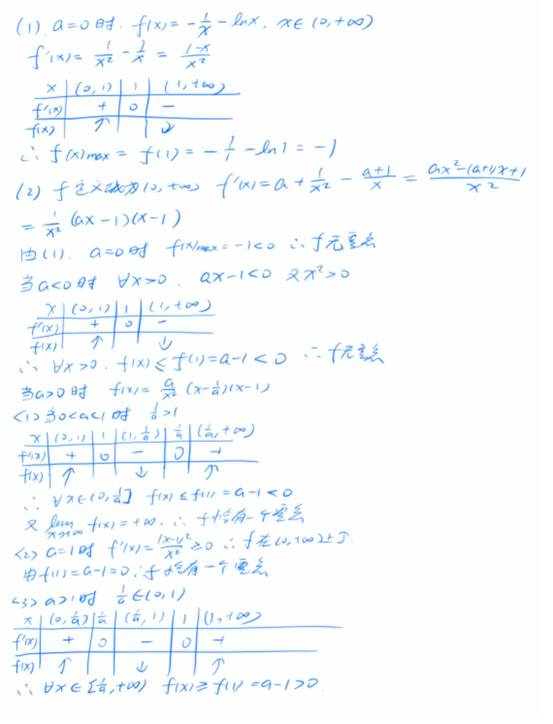 (1) a=0时. f(x)=-1/x-lnx. x∈(0,+∞)
f'(x)=1/x²-1/x=(1-x)/x²
x | (0,1) | 1 | (1,+∞)
f'(x) | + | 0 | -
f(x) | ↑ | | ↓
∴ f(x)max = f(1) = -1/1-ln1=-1
(2) f定义域为(0,+∞) f'(x)=a+1/x²-(a+1)/x=(ax²-(a+1)x+1)/x²
=1/x²(ax-1)(x-1)
由(1). a=0时 f(x)max=-1<0 ∴f无零点
当a<0时 ∀x>0. ax-1<0 又x²>0
x | (0,1) | 1 | (1,+∞)
f'(x) | + | 0 | -
f(x) | ↑ | | ↓
∴ ∀x>0. f(x)≤f(1)=a-1<0 ∴f无零点
当a>0时 f(x)=a/x²(x-1/a)(x-1)
<1>当0<a<1时 1/a>1
x | (0,1) | 1 | (1,1/a) | 1/a | (1/a,+∞)
f'(x) | + | 0 | - | 0 | +
f(x) | ↑ | | ↓ | | ↑
∴ ∀x∈(0,1/a] f(x)≤f(1)=a-1<0
又 lim x→+∞ f(x)=+∞. ∴ f恰有一个零点
<2> a=1时 f'(x)=(x-1)²/x²≥0 ∴f在(0,+∞)上↑.
由f(1)=a-1=0 ∴f恰有一个零点
<3> a>1时 1/a∈(0,1)
x | (0,1/a) | 1/a | (1/a,1) | 1 | (1,+∞)
f'(x) | + | 0 | - | 0 | +
f(x) | ↑ | | ↓ | | ↑
∴ ∀x∈[1/a,+∞) f(x)≥f(1)=a-1>0